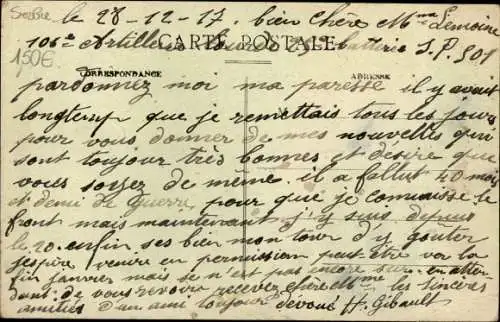 Serbie
le 28-12-17. bien chère Mme Lemoine
106e Artillerie Lourde batterie S.P. 501
150€
CARTE POSTALE
CORRESPONDANCE
ADRESSE
pardonnez moi ma paresse il y avait
longtemp que je remettais tous les jours
pour vous donner de mes nouvelles qui
sont toujour très bonnes et désire que
vous soyez de même. il a fallut 40 moi
et demi de Guerre, pour que je connaisse le
front mais maintenant j'y suis depuis
le 20. enfin ses bien mon tour d'y goûter
j'espère venire en permission peut être ver la
fin janvier mais se n'est pas encore sur. en atten
dant de vous revoir recevez chère Mme les sincères
amitiés d'un ami toujour dévoué H. Gibault